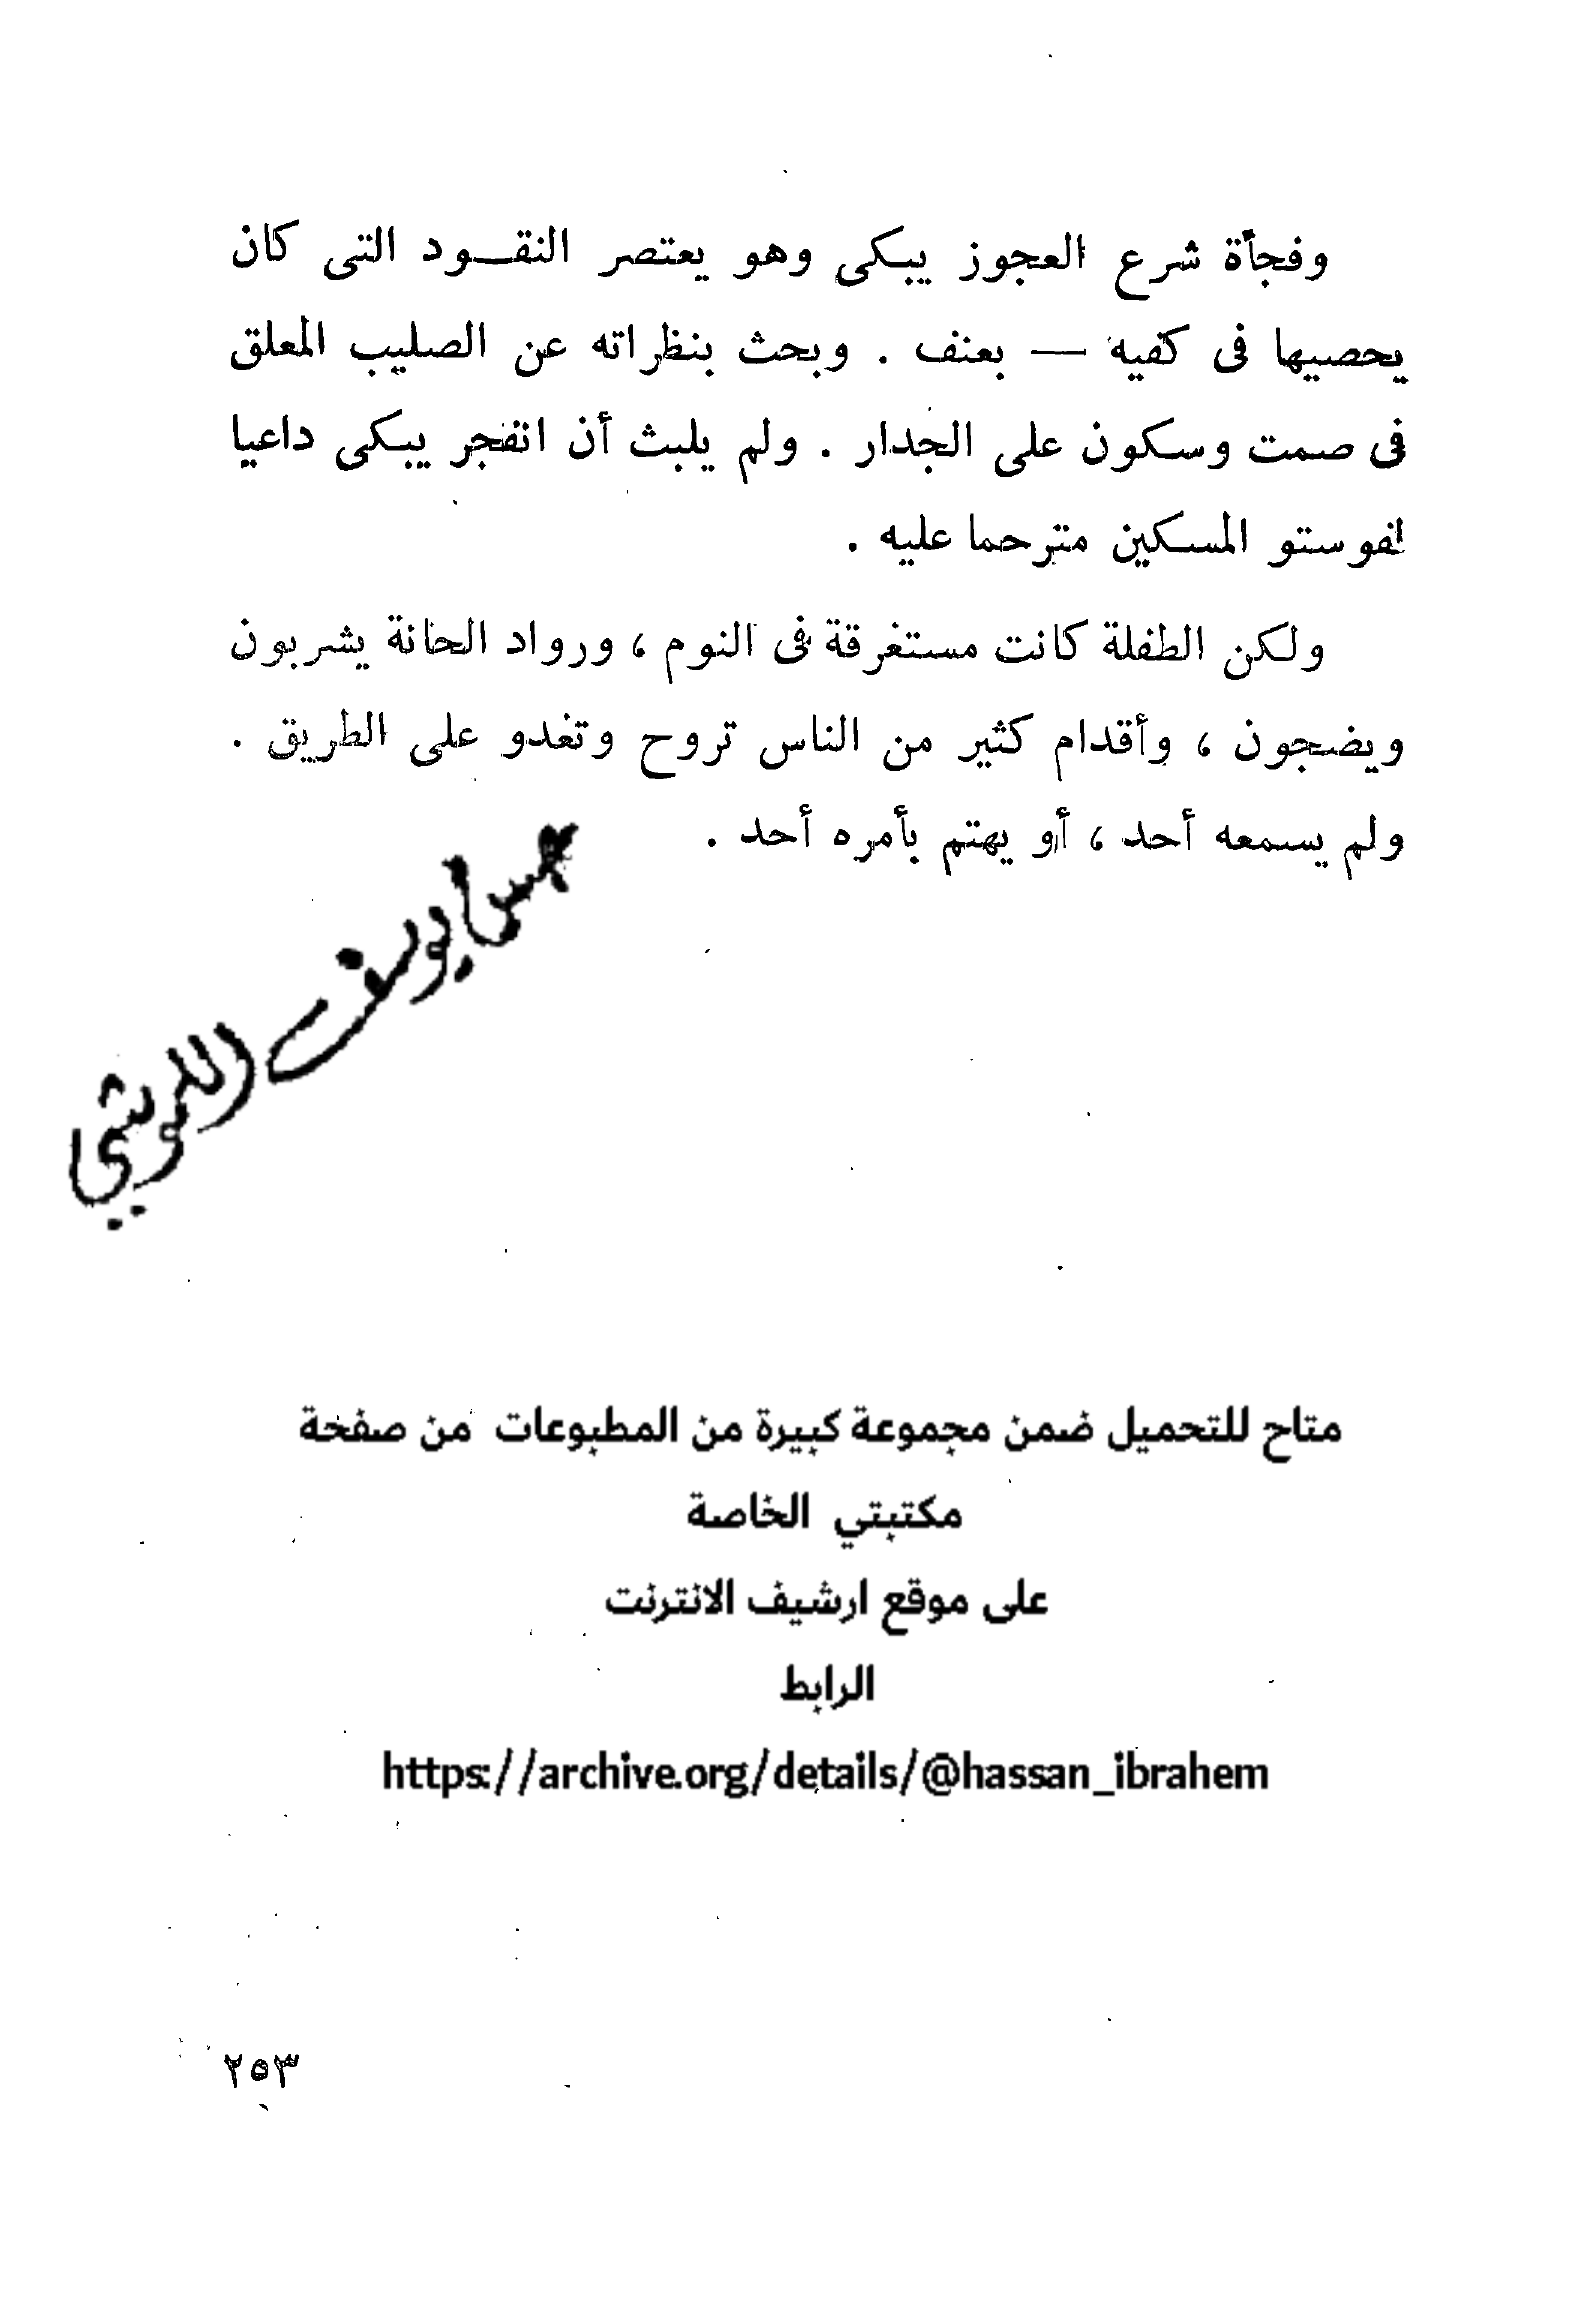 وفجأة شرع العجوز يبكى وهو يعتصر النقـــود التى كان
يحصيها فى كفيه — بعنف . وبحث بنظراته عن الصليب المعلق
فى صمت وسكون على الجدار . ولم يلبث أن انفجر يبكى داعيا
لفوستو المسكين مترحما عليه .
ولكن الطفلة كانت مستغرقة فى النوم ، ورواد الحانة يشربون
ويضجون ، وأقدام كثير من الناس تروح وتغدو على الطريق .
ولم يسمعه أحد ، أو يهتم بأمره أحد .
يوسف
متاح للتحميل ضمن مجموعة كبيرة من المطبوعات من صفحة
مكتبتي الخاصة
على موقع ارشيف الانترنت
الرابط
https://archive.org/details/@hassan_ibrahem
٢٥٣